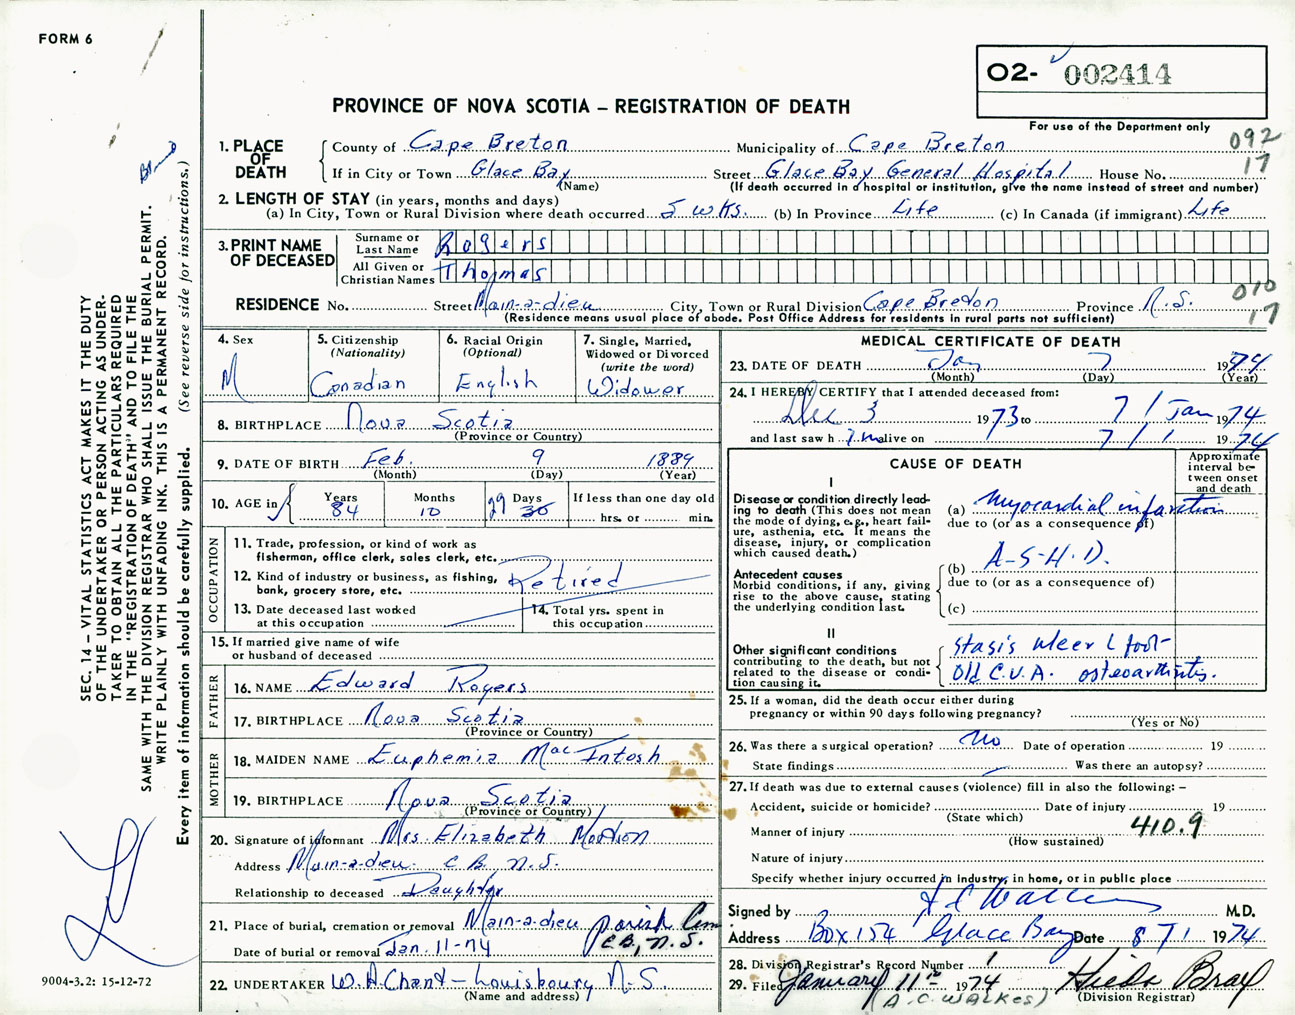 FORM 6
O2- 002414
PROVINCE OF NOVA SCOTIA – REGISTRATION OF DEATH
For use of the Department only
092
17
1. PLACE OF DEATH
County of Cape Breton Municipality of Cape Breton
If in City or Town Glace Bay Street Glace Bay General Hospital House No.
(Name) (If death occurred in a hospital or institution, give the name instead of street and number)
2. LENGTH OF STAY (in years, months and days)
(a) In City, Town or Rural Division where death occurred 5 wks. (b) In Province Life (c) In Canada (if immigrant) Life
3. PRINT NAME OF DECEASED
Surname or Last Name Rogers
All Given or Christian Names Thomas
RESIDENCE No. Street Main-a-dieu City, Town or Rural Division Cape Breton Province N.S.
010
17
(Residence means usual place of abode. Post Office Address for residents in rural parts not sufficient)
4. Sex
M
5. Citizenship
(Nationality)
Canadian
6. Racial Origin
(Optional)
English
7. Single, Married,
Widowed or Divorced
(write the word)
Widower
8. BIRTHPLACE Nova Scotia
(Province or Country)
9. DATE OF BIRTH Feb. 9 1889
(Month) (Day) (Year)
10. AGE in
Years 84
Months 10
Days 29 30
If less than one day old
hrs. or min.
OCCUPATION
11. Trade, profession, or kind of work as
fisherman, office clerk, sales clerk, etc.
12. Kind of industry or business, as fishing,
bank, grocery store, etc. Retired
13. Date deceased last worked
at this occupation
14. Total yrs. spent in
this occupation
15. If married give name of wife
or husband of deceased
FATHER
16. NAME Edward Rogers
17. BIRTHPLACE Nova Scotia
(Province or Country)
MOTHER
18. MAIDEN NAME Euphemia MacIntosh
19. BIRTHPLACE Nova Scotia
(Province or Country)
20. Signature of informant Mrs. Elizabeth
Address Main-a-dieu C.B. N.S.
Relationship to deceased Daughter
21. Place of burial, cremation or removal Main-a-dieu parish Cem
C.B., N.S.
Date of burial or removal Jan. 11-74
22. UNDERTAKER W.A. Chant – Louisbourg N.S.
(Name and address)
MEDICAL CERTIFICATE OF DEATH
23. DATE OF DEATH Jan 7 1974
(Month) (Day) (Year)
24. I HEREBY CERTIFY that I attended deceased from:
Dec 3 1973 to 7 / Jan 1974
and last saw him alive on 7 / 1 1974
CAUSE OF DEATH
Approximate interval between onset and death
I
Disease or condition directly leading to death (This does not mean the mode of dying, e.g., heart failure, asthenia, etc. It means the disease, injury, or complication which caused death.)
(a) Myocardial infarction
due to (or as a consequence of)
Antecedent causes
Morbid conditions, if any, giving rise to the above cause, stating the underlying condition last.
(b) A-S-H-D.
due to (or as a consequence of)
(c)
II
Other significant conditions
contributing to the death, but not related to the disease or condition causing it.
Stasis ulcer L foot-
Old C.V.A. osteoarthritis.
25. If a woman, did the death occur either during
pregnancy or within 90 days following pregnancy?
(Yes or No)
26. Was there a surgical operation? No Date of operation 19
State findings Was there an autopsy?
27. If death was due to external causes (violence) fill in also the following: –
Accident, suicide or homicide? Date of injury 19
(State which)
410.9
Manner of injury
(How sustained)
Nature of injury
Specify whether injury occurred in industry, in home, or in public place
Signed by M.D.
Address Box 154 Glace Bay Date 8 / 1 1974
28. Division Registrar's Record Number 1
29. Filed January 11th 1974 Hilda Bray
(A.C. WALKES) (Division Registrar)
SEC. 14 – VITAL STATISTICS ACT MAKES IT THE DUTY
OF THE UNDERTAKER OR PERSON ACTING AS UNDER-
TAKER TO OBTAIN ALL THE PARTICULARS REQUIRED
IN THE "REGISTRATION OF DEATH" AND TO FILE THE
SAME WITH THE DIVISION REGISTRAR WHO SHALL ISSUE THE BURIAL PERMIT.
WRITE PLAINLY WITH UNFADING INK. THIS IS A PERMANENT RECORD.
Every item of information should be carefully supplied. (See reverse side for instructions.)
9004-3.2: 15-12-72